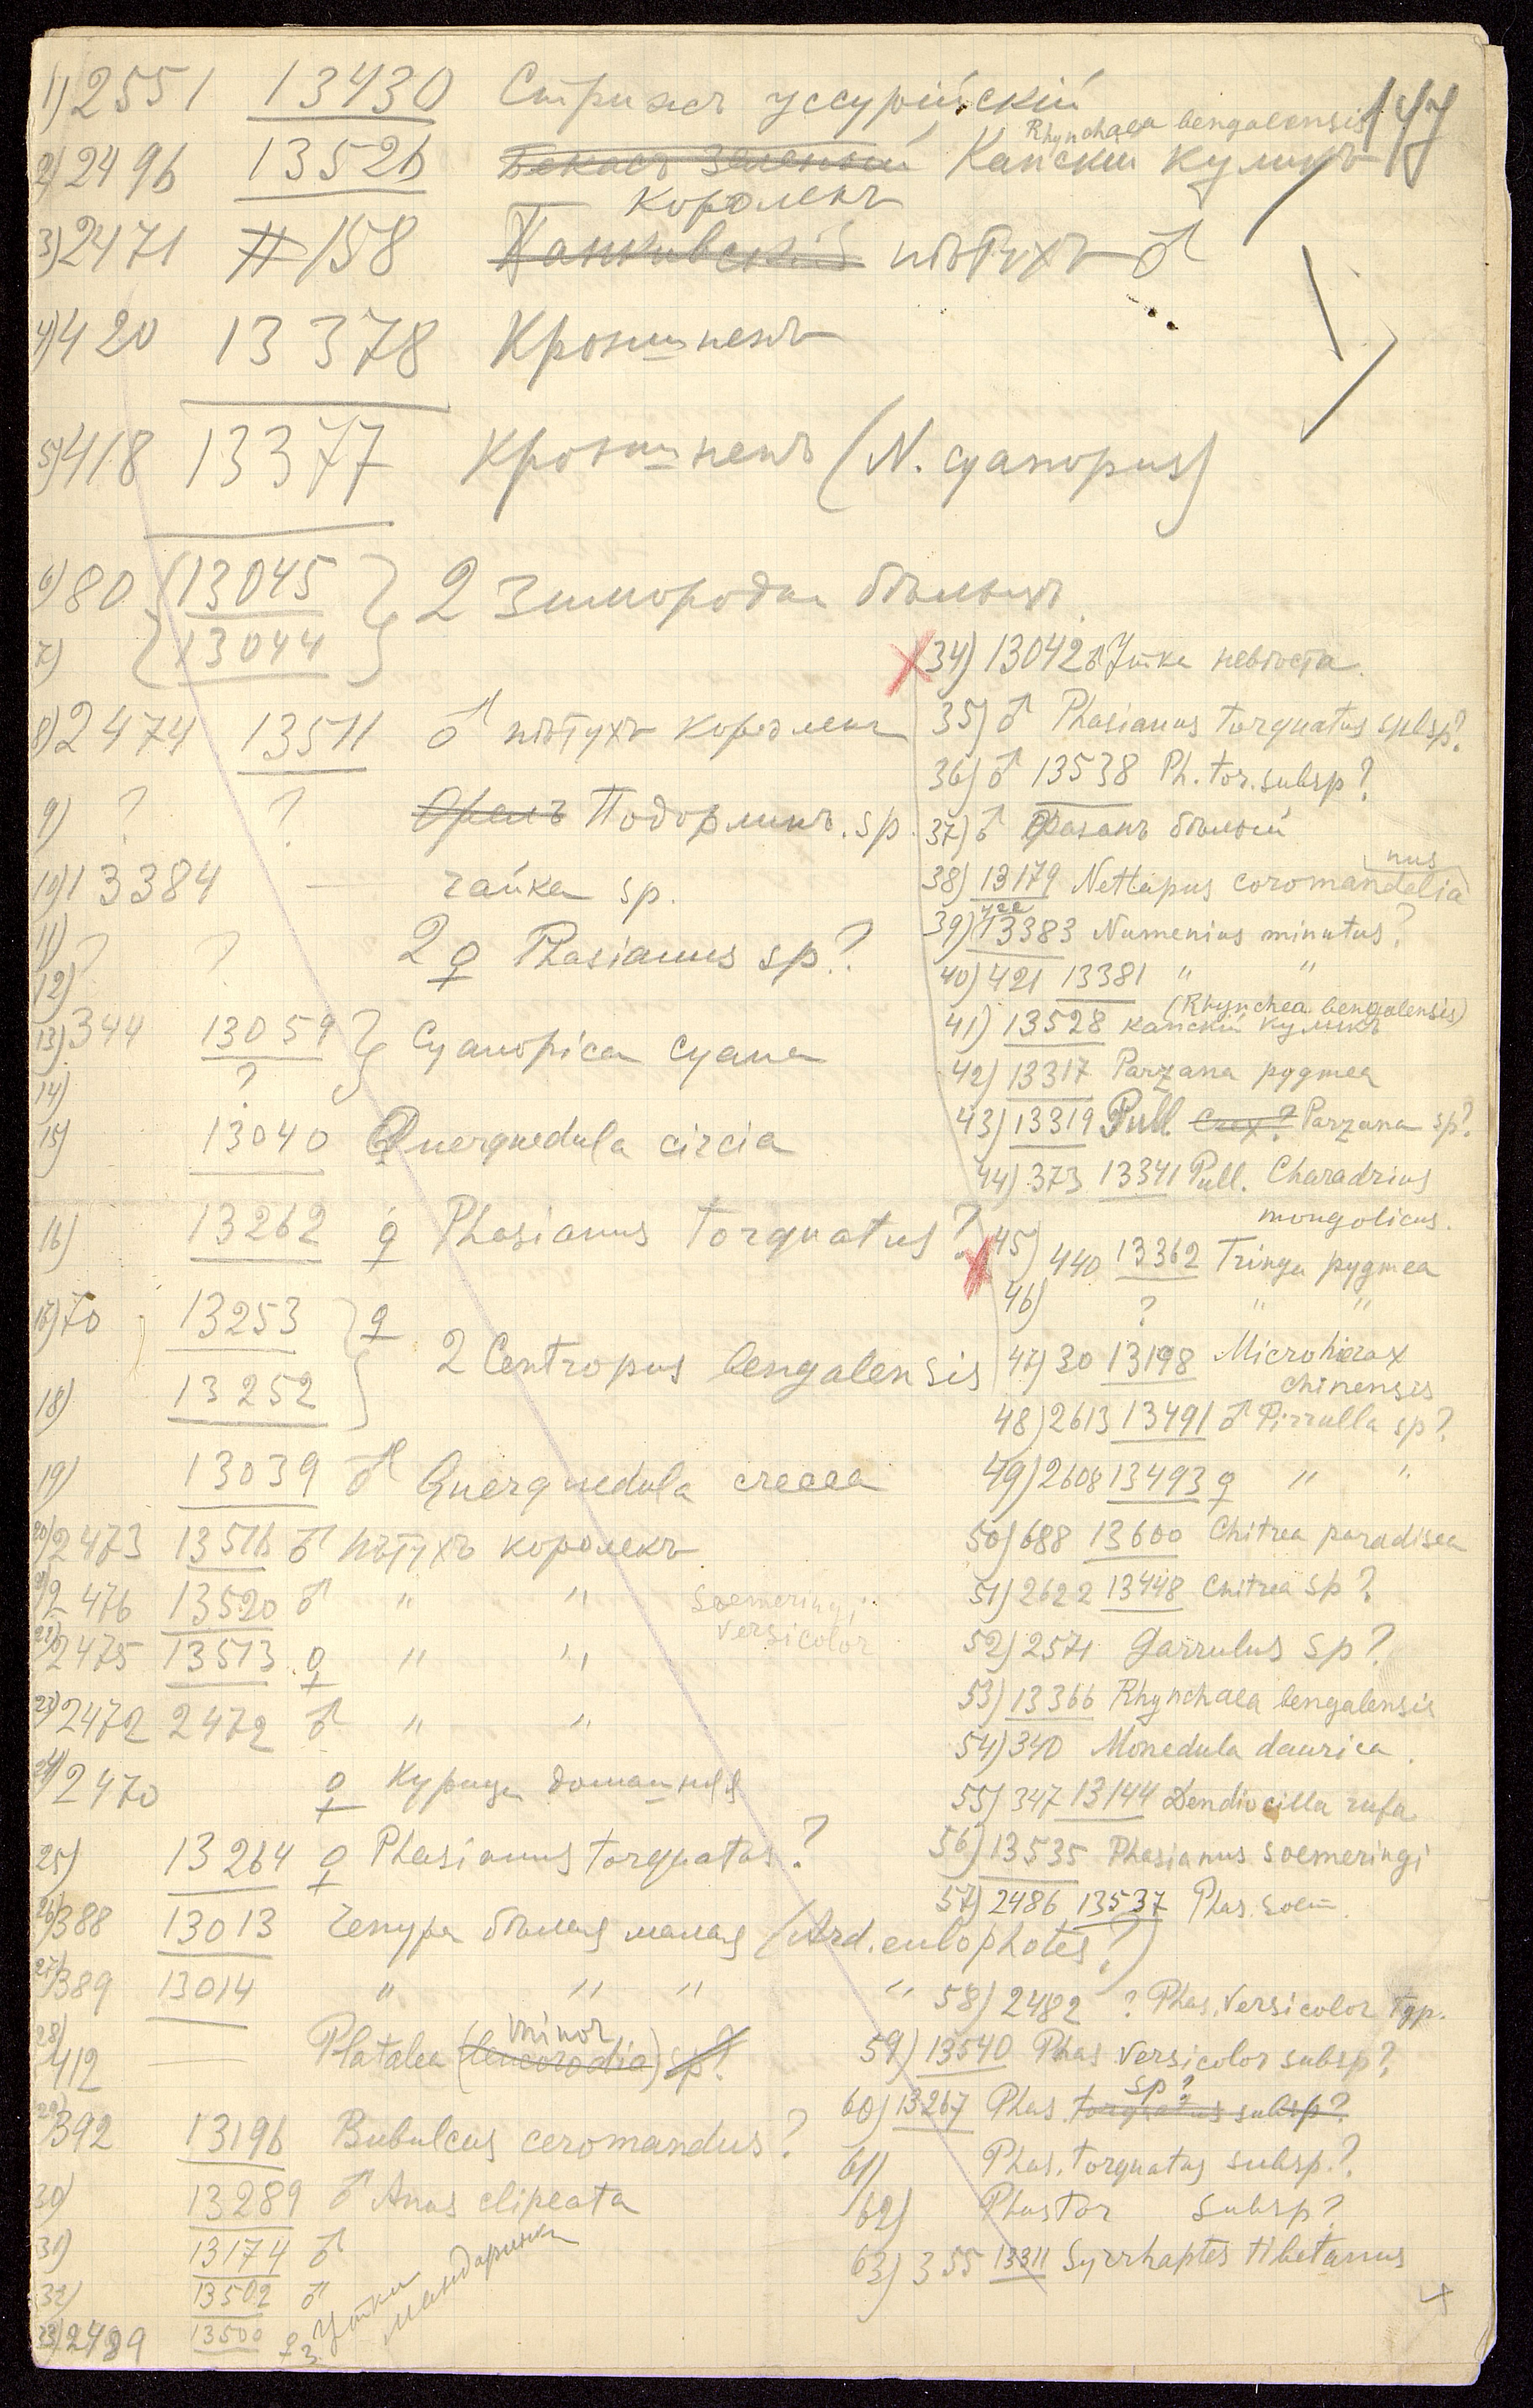 177
1) 2551 13430 Стрижъ уссурійскій
Rhynchaea bengalensis
2) 2496 13526 Бекасъ зеленый Капскій куликъ
Королекъ
3) 2471 # 158 Банкивскій пѣтухъ ♂
4) 420 13378 Кроншнепъ
5) 418 13377 Кроншнепъ (N. cyanopus)
6) 80 13045 } 2 Зимородка бѣлыхъ
7) 13044
8) 2474 13511 ♂ пѣтухъ королекъ
9) ? ? Орелъ Подорликъ. sp.
10) 13384 — чайка sp.
11) ? ? 2 ♀ Phasianus sp?
12)
13) 344 13059 } Cyanopica cyana
14) ?
15) 13040 Querquedula circia
16) 13262 ♀ Phasianus torquatus?
17) 70 13253 } ♀ 2 Centropus bengalensis
18) 13252
19) 13039 ♂ Querquedula crecca
20) 2473 13516 ♂ пѣтухъ королекъ
21) 2476 13520 ♂ " " Soemeringi
versicolor
22) 2475 13513 ♀ " "
23) 2472 2472 ♂ " "
24) 2470 ♀ Курица домашняя
25) 13264 ♀ Phasianus torquatus?
26) 388 13013 Чепура бѣлая малая (Ard. eulophotes?)
27) 389 13014 " " " "
minor
28) 412 — Platalea (leucorodia) sp?
29) 392 13196 Bubulcus ceromandus?
30) 13289 ♂ Anas clipeata
31) 13174 ♂
32) 13502 ♂
33) 2489 13500 ♀
3 Утки мандаринки
34) 13042 ♂ Утка невѣста.
35) ♂ Phasianus torquatus spbsp?
36) ♂ 13538 Ph. tor. subsp?
37) ♂ Фазанъ бѣлый
nus
38) 13179 Nettapus coromandelia
422
39) 13383 Numenius minutus?
40) 421 13381 " "
(Rhynchea bengalensis)
41) 13528 капскій куликъ
42) 13317 Parzana pygmea
43) 13319 Pull. Crex? Parzana sp?
44) 373 13341 Pull. Charadrius
mongolicus.
45) 440 13362 Tringa pygmea
46) ? " "
47) 30 13198 Microhierax
chinensis
48) 2613 13491 ♂ Pirrulla sp?
49) 2608 13493 ♀ " "
50) 688 13600 Chitrea paradisea
51) 2622 13448 Chitrea sp?
52) 2571 Garrulus sp?
53) 13366 Rhynchaea bengalensis
54) 340 Monedula daurica.
55) 347 13144 Dendrocilla rufa
56) 13535 Phasianus soemeringi
57) 2486 13537 Phas. soem.
58) 2482 ? Phas. versicolor typ.
59) 13540 Phas versicolor subsp?
sp?
60) 13267 Phas. torquatus subsp?
61) Phas. torquatus subsp.?
62) Phas tor subsp?
63) 355 13311 Syrrhaptes tibetanus